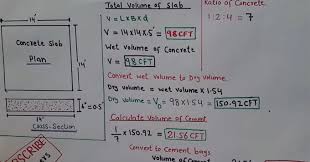 Total Volume of Slab
V = L×B×d
V = 14×14×.5' = 98 CFT
Wet Volume of Concrete
V = 98 CFT
Convert wet volume to Dry volume
Dry volume = wet volume × 1.54
Dry volume = V = 98×1.54 = 150.92 CFT
Calculate Volume of Cement
1/7 × 150.92 = 21.56 CFT
Convert to Cement bags
Ratio of Concrete
1:2:4 = 7
14'
Concrete Slab
Plan
14'
6"=0.5'
14'
Cross-Section
SUBSCRIBE